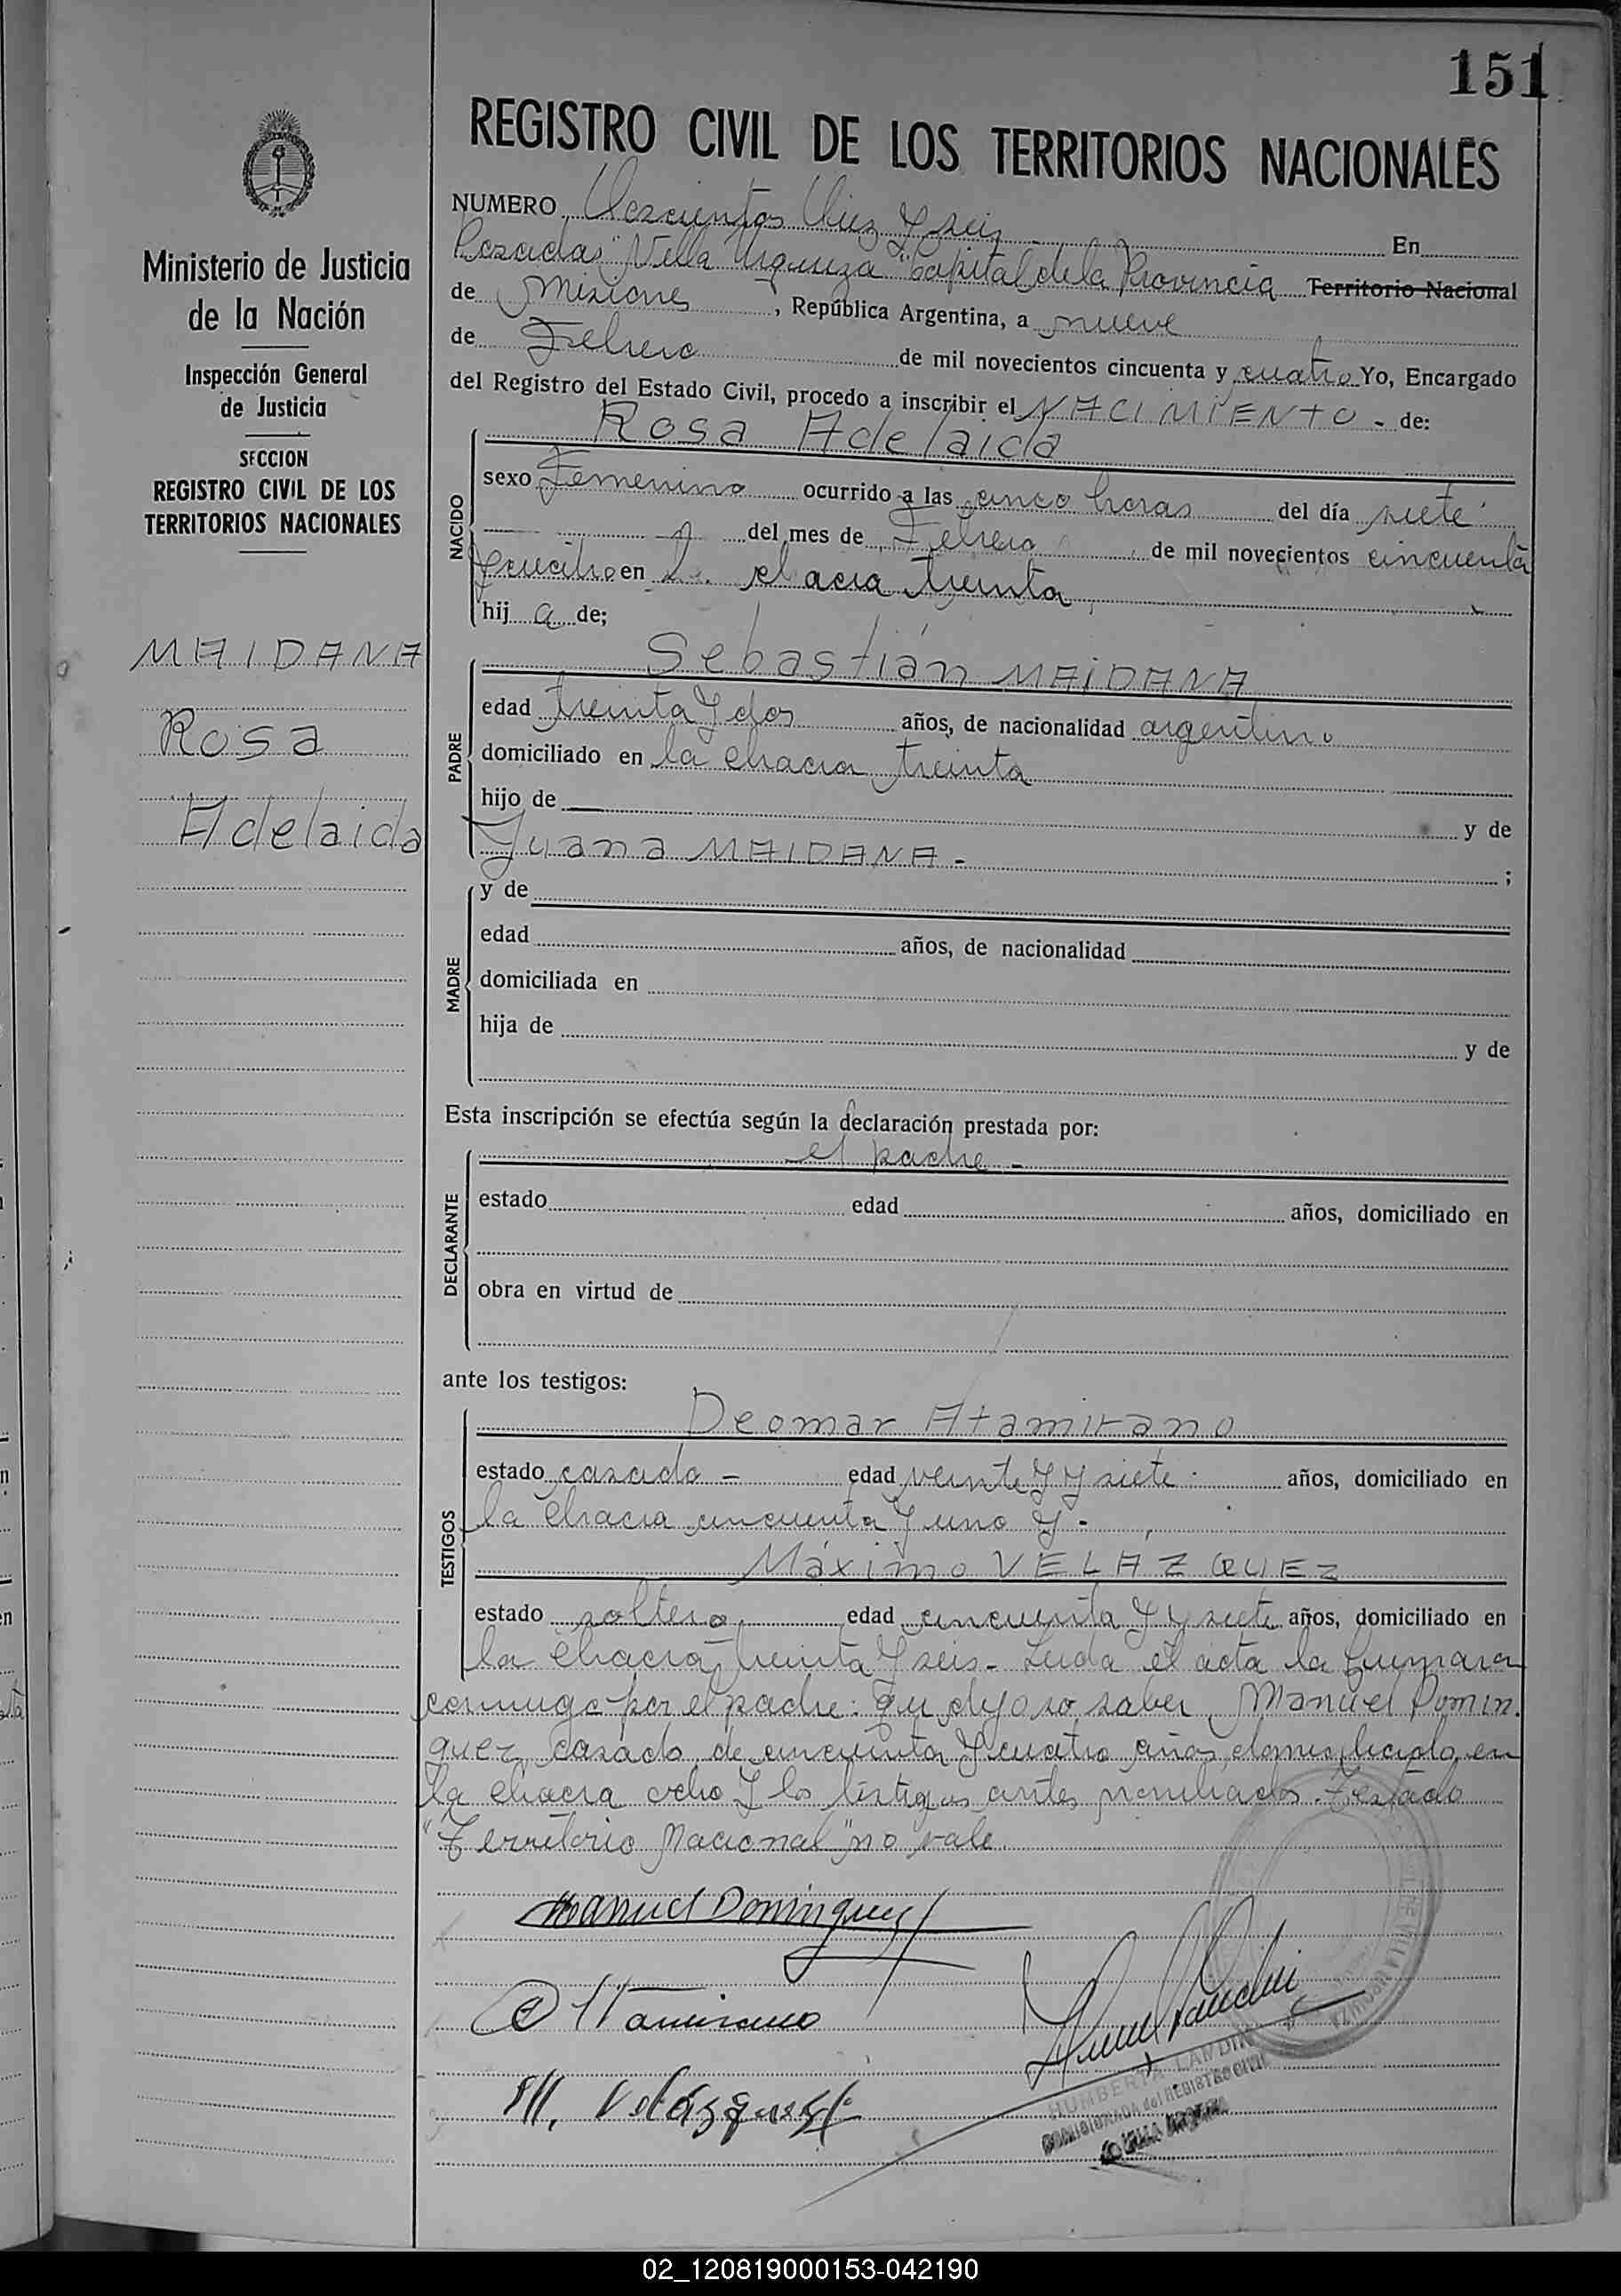 151
REGISTRO CIVIL DE LOS TERRITORIOS NACIONALES
Ministerio de Justicia
de la Nación
Inspección General
de Justicia
SECCION
REGISTRO CIVIL DE LOS
TERRITORIOS NACIONALES
MAIDANA
Rosa
Adelaida
NUMERO Doscientos Diez y seis En
Posadas "Villa Urquiza" Capital de la Provincia Territorio Nacional
de Misiones, República Argentina, a nueve
de Febrero de mil novecientos cincuenta y cuatro Yo, Encargado
del Registro del Estado Civil, procedo a inscribir el NACIMIENTO - de:
NACIDO
Rosa Adelaida
sexo Femenino ocurrido a las cinco horas del día siete
del mes de Febrero de mil novecientos cincuenta
y cuatro en chacra treinta
hij a de;
PADRE
Sebastián MAIDANA
edad treinta y dos años, de nacionalidad argentino
domiciliado en la chacra treinta
hijo de y de
Juana MAIDANA - ;
MADRE
y de
edad años, de nacionalidad
domiciliada en
hija de y de
Esta inscripción se efectúa según la declaración prestada por:
DECLARANTE
el padre -
estado edad años, domiciliado en
obra en virtud de
ante los testigos:
TESTIGOS
Deomar Atamirano
estado casado - edad veinte y y siete años, domiciliado en
la chacra cincuenta y uno y -
Máximo VELÁZQUEZ
estado soltero edad cincuenta y y siete años, domiciliado en
la chacra treinta y seis - Leida el acta la firmaron
conmigo por el padre: que dijo no saber Manuel Domin
guez casado de cincuenta y cuatro años domiciliado en
la chacra ocho y los testigos antes nombrados. Testado
"Territorio Nacional" no vale.
Manuel Dominguez
Atamirano
M. Velázquez
HUMBERTA LANDINI
COMISIONADA del REGISTRO CIVIL
VILLA URQUIZA
02_120819000153-042190